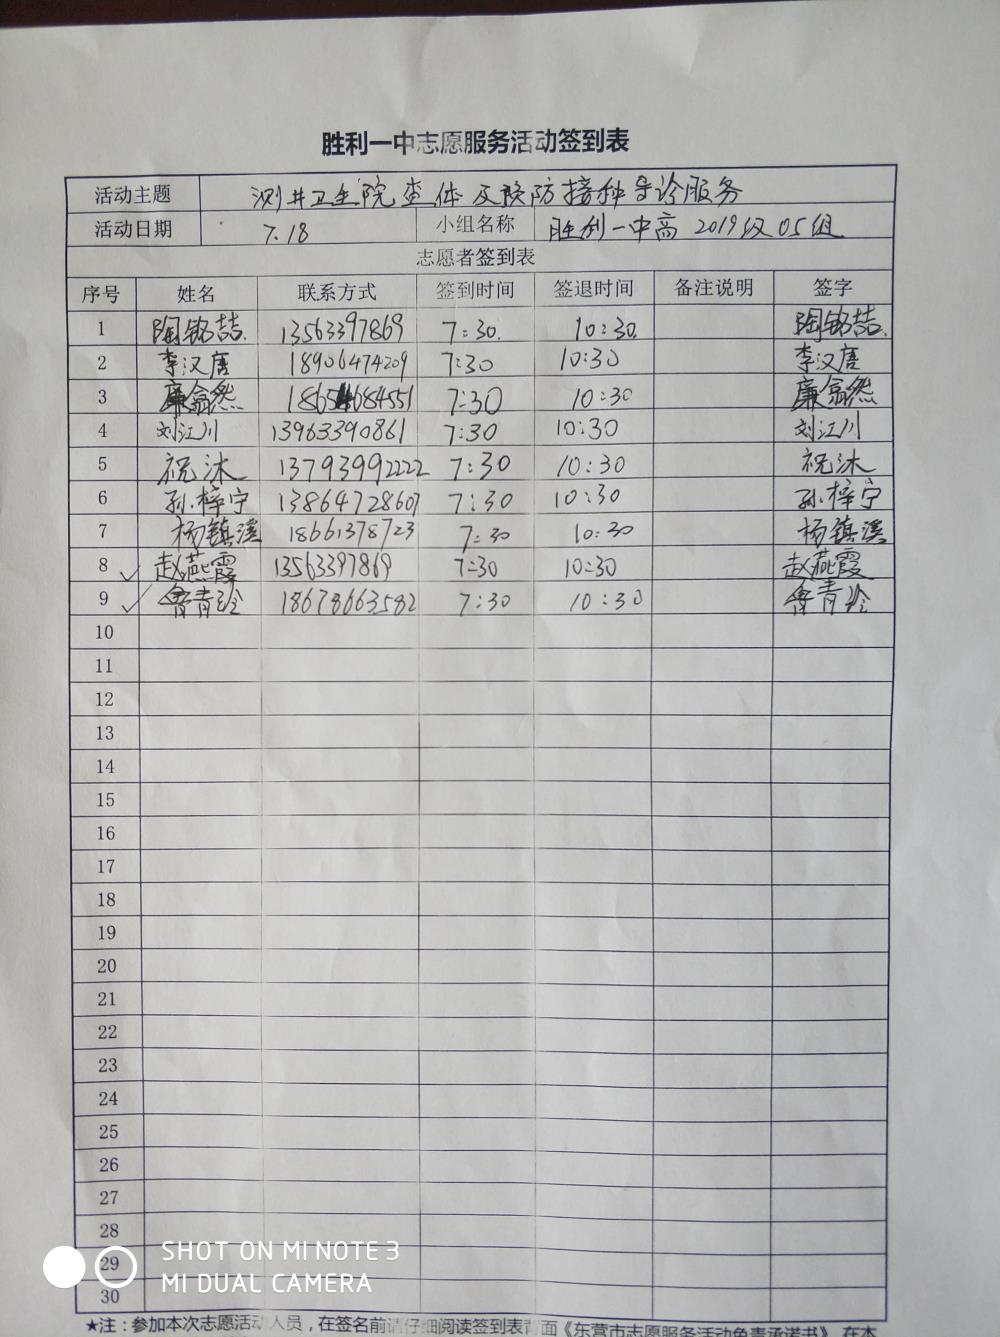 胜利一中志愿服务活动签到表
活动主题 测井卫生院查体及预防接种导诊服务
活动日期 7.18 小组名称 胜利一中高2019级05组
志愿者签到表
序号 姓名 联系方式 签到时间 签退时间 备注说明 签字
1 陶铭喆 13563397869 7:30 10:30 陶铭喆
2 李汉唐 18906474209 7:30 10:30 李汉唐
3 廉翕然 18654684551 7:30 10:30 廉翕然
4 刘江川 13963390861 7:30 10:30 刘江川
5 祝沐 13793992222 7:30 10:30 祝沐
6 孙梓宁 13864728607 7:30 10:30 孙梓宁
7 杨镇溪 18661378723 7:30 10:30 杨镇溪
8 赵燕霞 13563397869 7:30 10:30 赵燕霞
9 鲁青玲 18678663582 7:30 10:30 鲁青玲
10
11
12
13
14
15
16
17
18
19
20
21
22
23
24
25
26
27
28
29
30
SHOT ON MI NOTE 3
MI DUAL CAMERA
★注：参加本次志愿活动人员，在签名前请仔细阅读签到表背面《东营市志愿服务活动免责承诺书》，在本